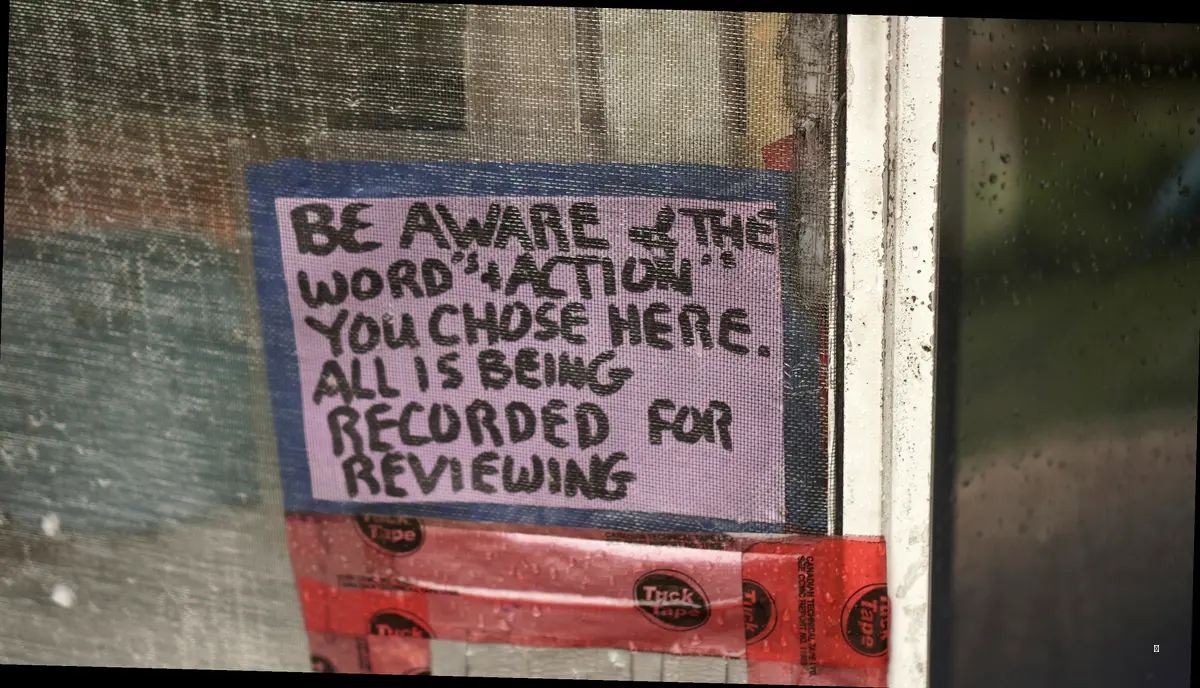 BE AWARE of THE
WORD"s + ACTION"
YOU CHOSE HERE.
ALL IS BEING
RECORDED FOR
REVIEWING
Tuck
Tape
Tuck
Tape
Tuck
Tuck
Tuck
Tape
CANADIAN TECHNICAL TAPE LTD